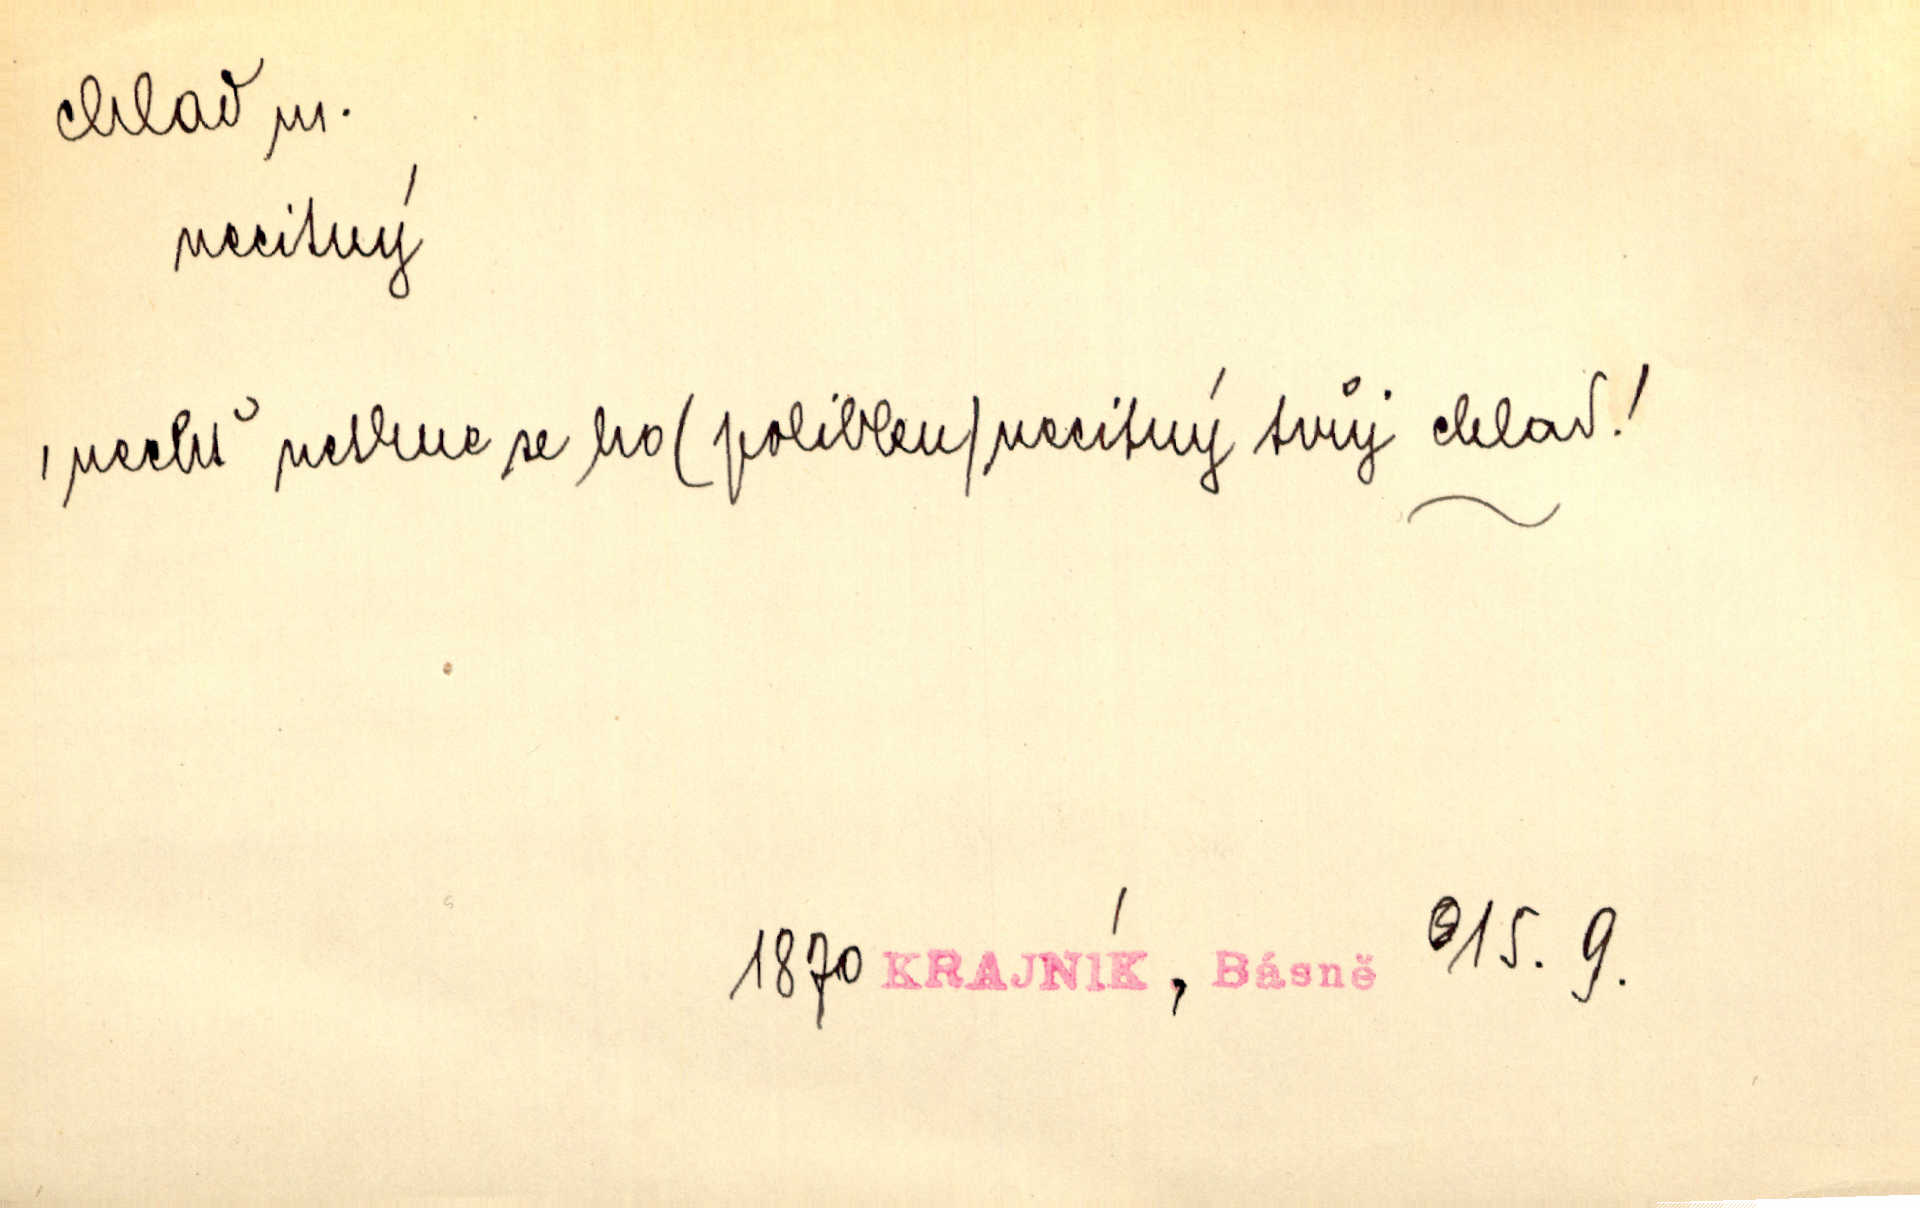 chlad m.
necitný
, nechť netkne se ho (políbku) necitný tvůj chlad!
1870 KRAJNÍK, Básně 15. 9.